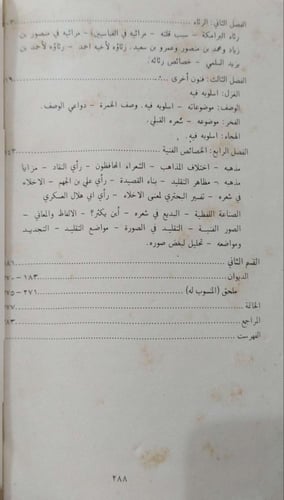 الفصل الثاني: الرثاء
رثاء البرامكة - سبب قلته - مراثيه في العباسيين) - مراثيه في منصور بن
زياد ومحمد بن منصور وعمرو بن سعيد. رثاؤه لأخيه احمد - رثاؤه لأحمد بن
يزيد السلمي - خصائص رثائه.
الفصل الثالث: فنون أخرى
الغزل: اسلوبه فيه
الوصف: موضوعاته - اسلوبه فيه. وصف الخمرة - دواعي الوصف.
الفخر: موضوعه - شعره القبلي.
الهجاء: اسلوبه فيه
الفصل الرابع: الخصائص الفنية ٤٣
مذهبه - اختلاف المذاهب - الشعراء المحافظون - رأي النقاد - مزايا
مذهبه - مظاهر التقليد - بناء القصيدة - رأي علي بن الجهم - الاخلاء
في شعره - تفسير البحتري لمعنى الاخلاء - رأي ابي هلال العسكري
الصناعة اللفظية - البديع في شعره - أين يكثر؟ - الالفاظ والمعاني -
الصور الفنية - التقليد في الصورة - مواضع التقليد - التجديد
ومواضعه - تحليل لبعض صوره.
القسم الثاني ٨١
الديوان ١٨٣ - ٧٠
ملحق (المنسوب له) ٢٧١ - ٧٥
الخاتمة ٧٧
المراجع ٨٣
الفهرست
٢٨٨